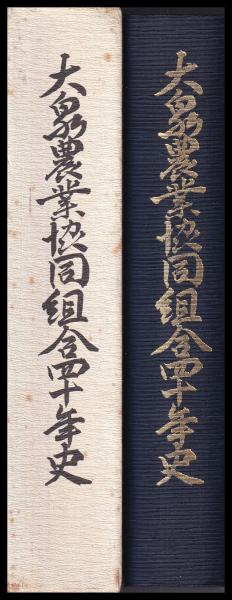 大泉農業協同組合四十年史
大泉農業協同組合四十年史